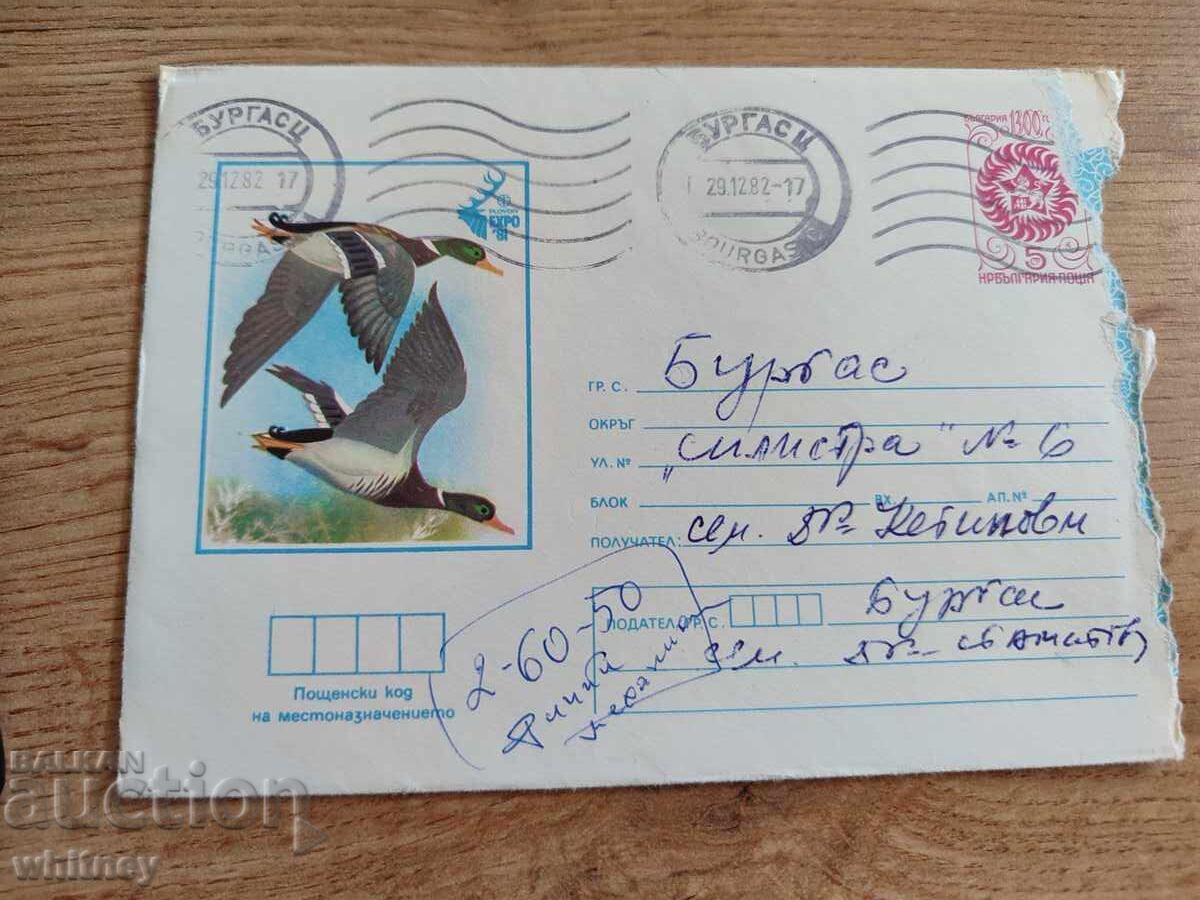 БУРГАС Ц
29.12.82 17
PLOVDIV
EXPO
'81
БУРГАС Ц
29.12.82-17
BOURGAS
БЪЛГАРИЯ 1300 г.
5
НРБЪЛГАРИЯ ПОЩА
ГР. С. Бургас
ОКРЪГ
УЛ. № „Силистра" № 6
БЛОК ВХ. АП. №
ПОЛУЧАТЕЛ: сем. Д-р
ПОДАТЕЛ: ГР. С. Бургас
сем. Д-р
2-60-50
Пощенски код
на местоназначението
BALKAN
auction
whitney